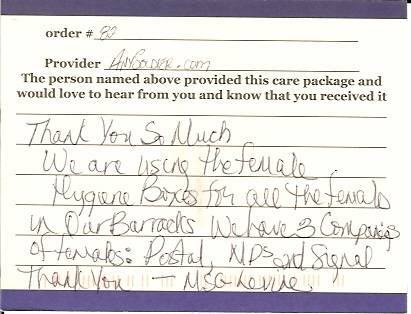 order # 82
Provider AnySoldier.com
The person named above provided this care package and
would love to hear from you and know that you received it
Thank You So Much
We are using the female
Hygiene Boxes for all the females
in Our Barracks We have 3 Companies
of females: Postal, MPs and Signal
Thank You — MSG Levine